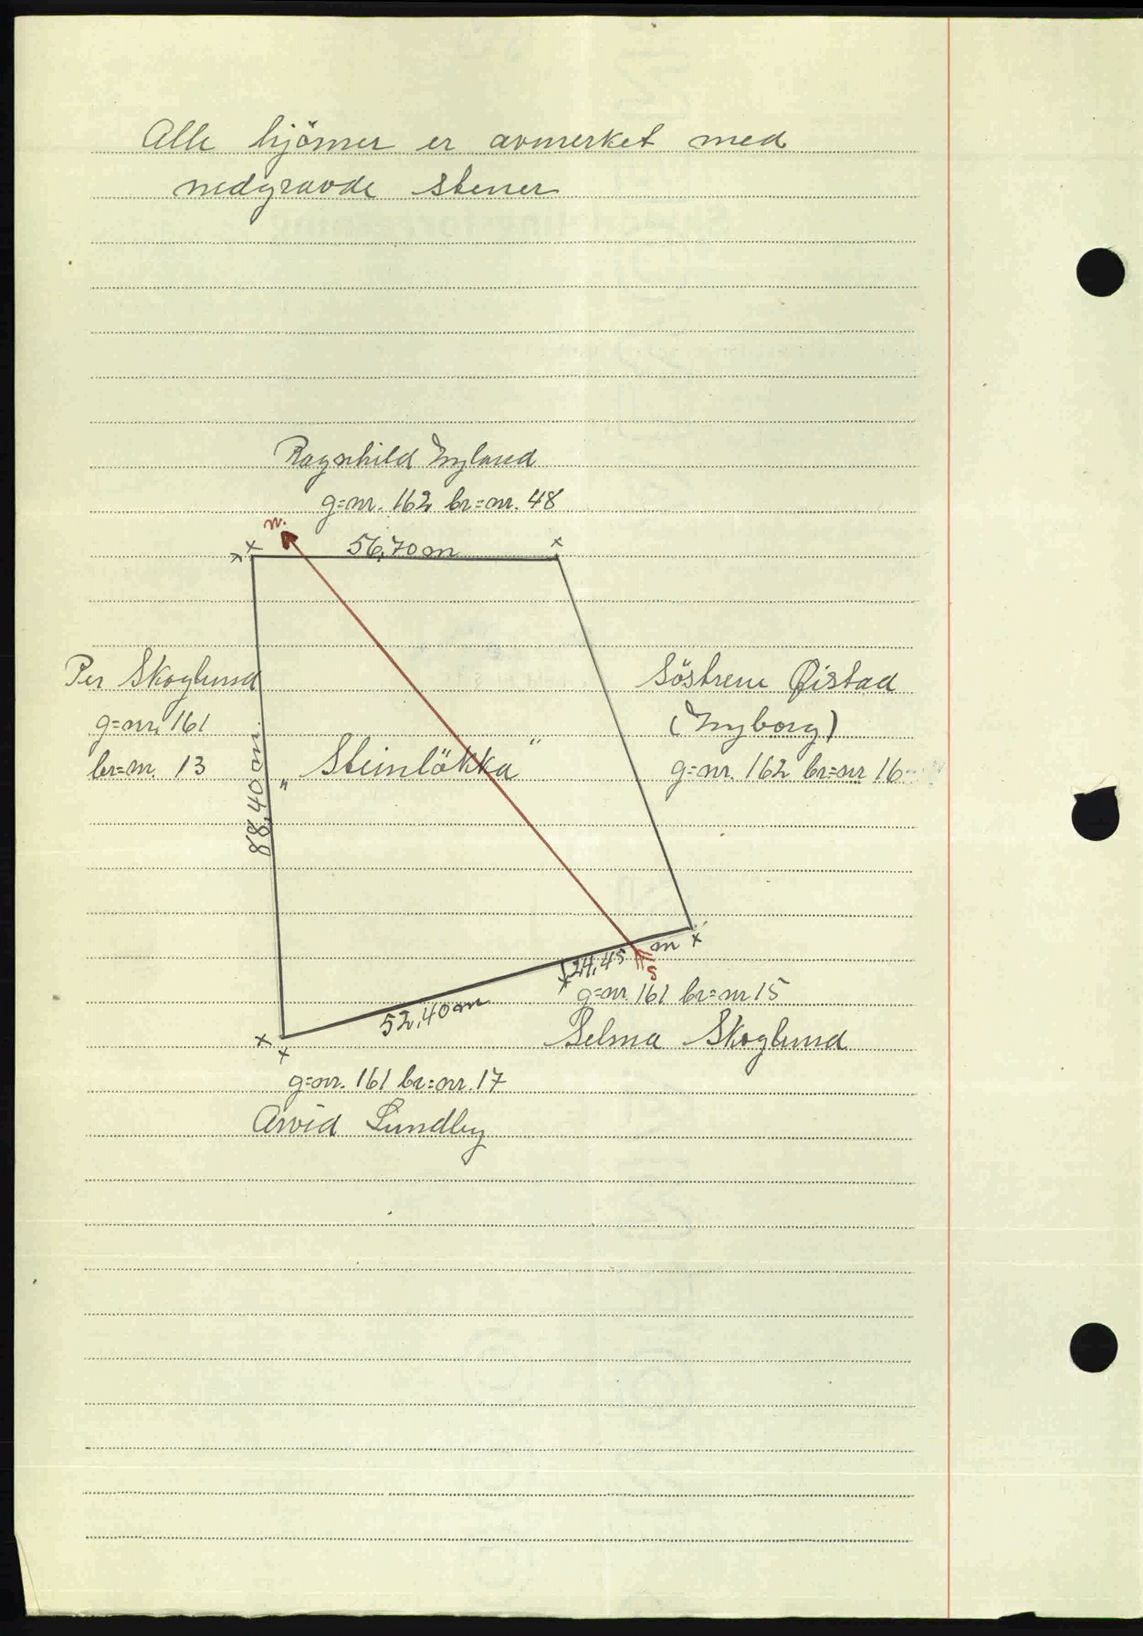 Alle hjörner er avmerket med
nedgravde stener
Ragnhild Nyland
g=nr. 162 br=nr. 48
n.
56,70 m
Per Skoglund
g=nr. 161
br=nr. 13
88,40 m.
„Steinlökka"
Söstrene Øistad
(Nyborg)
g=nr. 162 br=nr 16
24,45 m
s
g=nr 161 br=nr 15
Selma Skoglund
52,40 m
g=nr. 161 br=nr. 17
Arvid Lundby